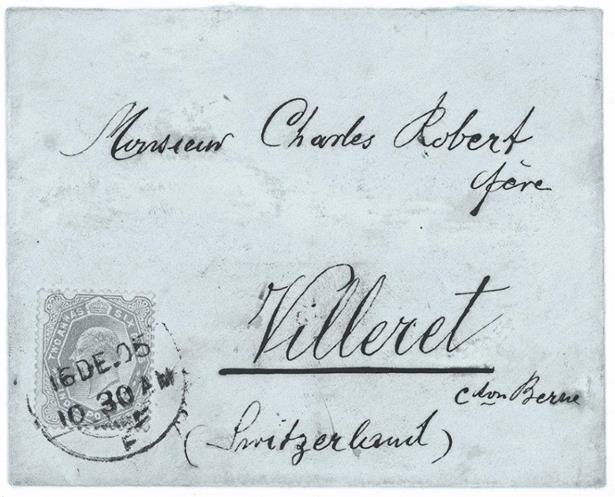 Monsieur Charles Robert
père
Villeret
cton Berne
(Switzerland)
TWO ANNAS SIX
16 DE. 05
10 30 AM